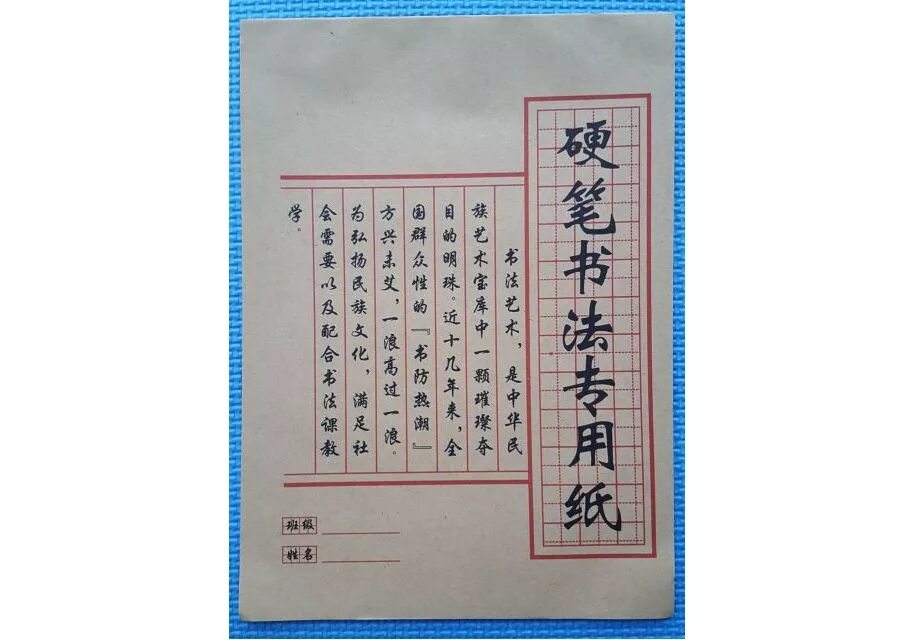 硬笔书法专用纸
书法艺术，是中华民
族艺术宝库中一颗璀璨夺
目的明珠。近十几年来，全
国群众性的『书防热潮』
方兴未艾，一浪高过一浪。
为弘扬民族文化，满足社
会需要以及配合书法课教
学。
班级
姓名